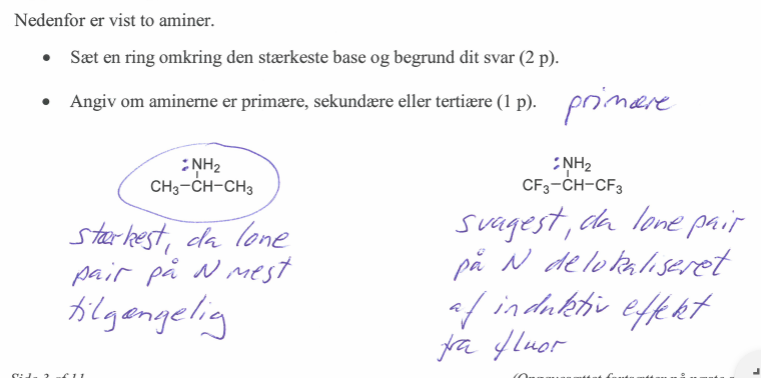 Nedenfor er vist to aminer.
• Sæt en ring omkring den stærkeste base og begrund dit svar (2 p).
• Angiv om aminerne er primære, sekundære eller tertiære (1 p). primære
:NH2
CH3-CH-CH3
stærkest, da lone
pair på N mest
tilgængelig
:NH2
CF3-CH-CF3
svagest, da lone pair
på N delokaliseret
af induktiv effekt
fra fluor